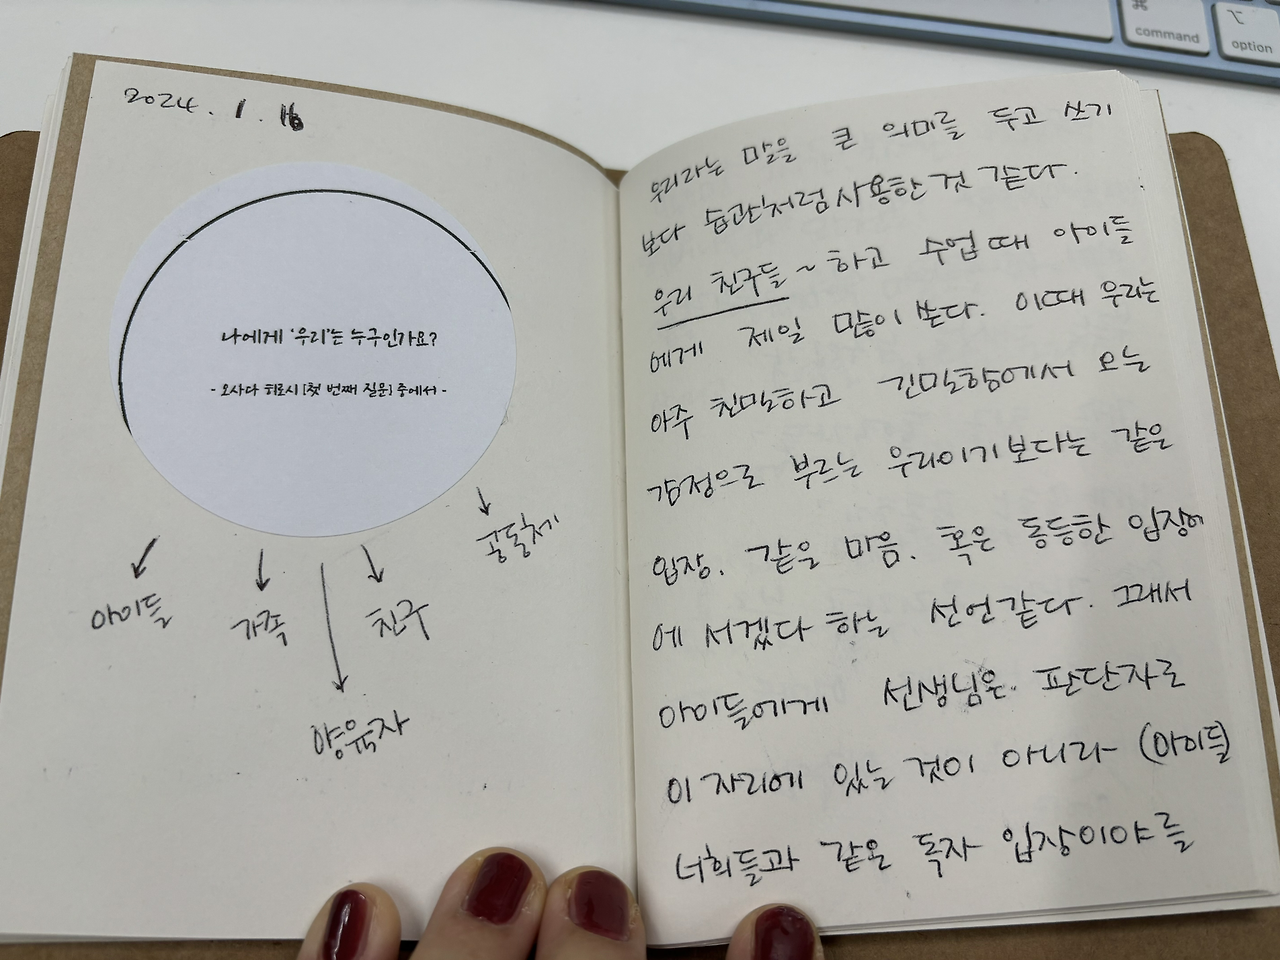 2024. 1. 16
나에게 '우리'는 누구인가요?
- 오사다 히로시 [첫 번째 질문] 중에서 -
공동체
아이들
가족
친구
양육자
우리라는 말을 큰 의미를 두고 쓰기
보다 습관처럼 사용한 것 같다.
우리 친구들 ~ 하고 수업 때 아이들
에게 제일 많이 쓴다. 이때 우리는
아주 친밀하고 긴밀함에서 오는
감정으로 부르는 우리이기보다는 같은
입장. 같은 마음. 혹은 동등한 입장에
에 서겠다 하는 선언같다. 그래서
아이들에게 선생님은 판단자로
이 자리에 있는 것이 아니라 (아이들
너희들과 같은 독자 입장이야를
command
option